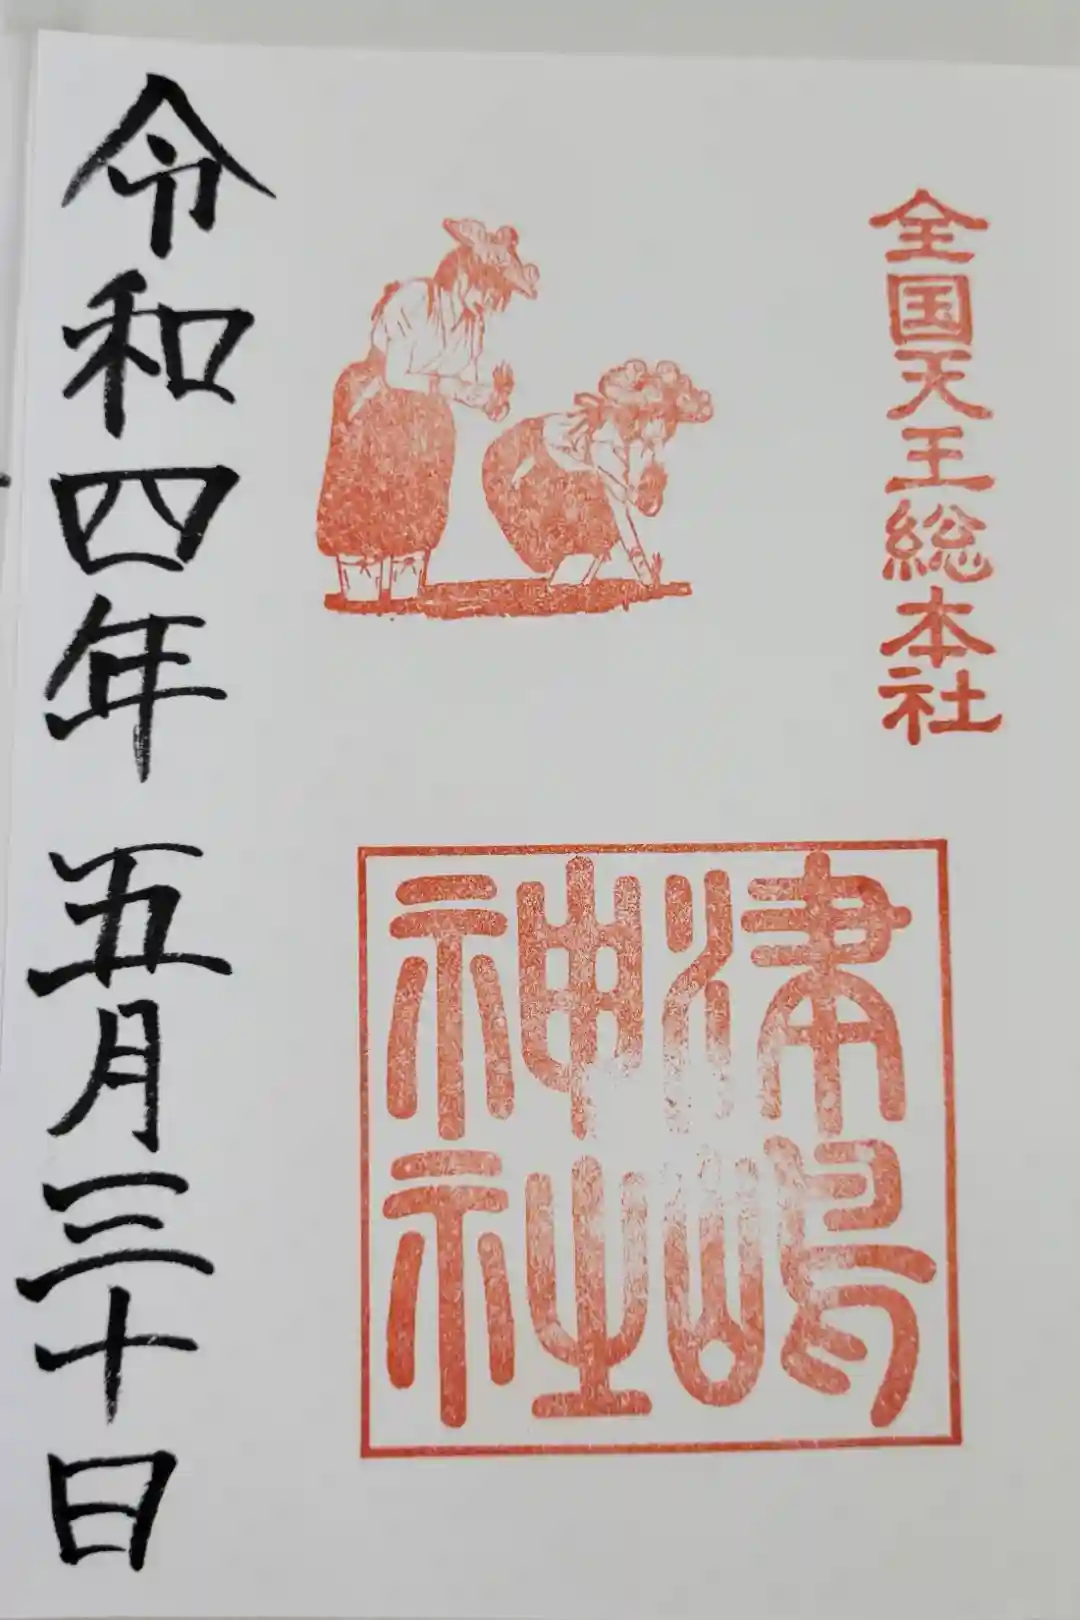 全国天王総本社
津嶋
神社
令和四年五月三十日